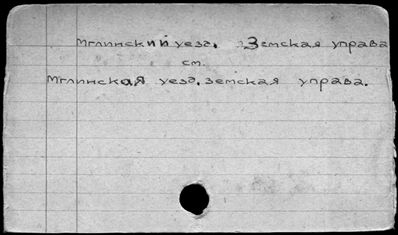 Мглинский уезд. Земская управа
см.
Мглинская уезд. земская управа.